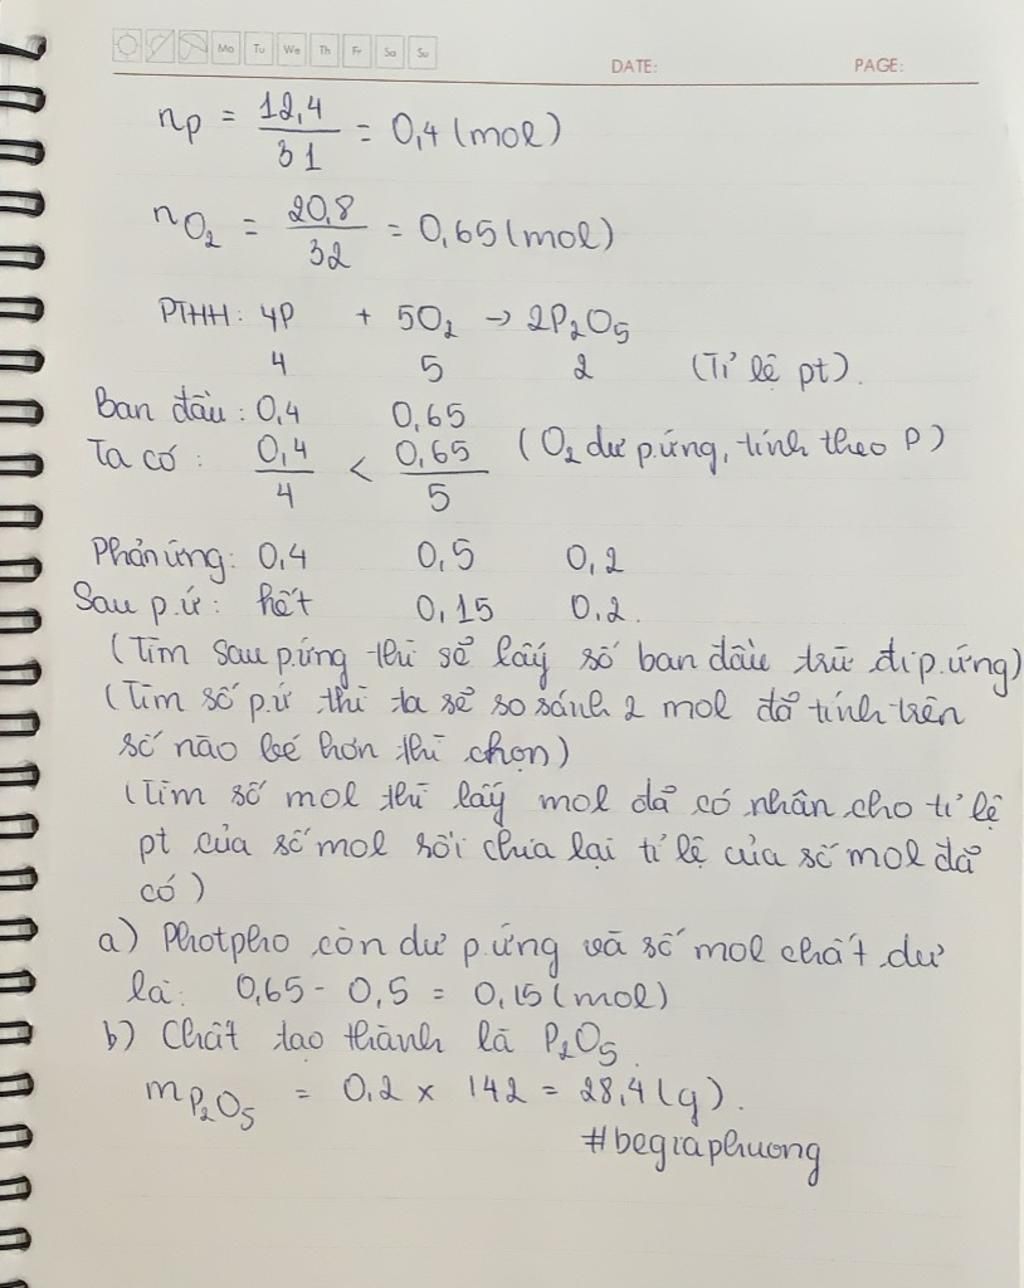 Mo Tu We Th Fr Sa Su
DATE: PAGE:
nP = 12,4/31 = 0,4 (mol)
nO₂ = 20,8/32 = 0,65 (mol)
PTHH: 4P + 5O₂ → 2P₂O₅
4 5 2 (Tỉ lệ pt).
Ban đầu: 0,4 0,65
Ta có: 0,4/4 < 0,65/5 (O₂ dư p.ứng, tính theo P)
Phản ứng: 0,4 0,5 0,2
Sau p.ứ: hết 0,15 0.2.
(Tìm sau p.ứng thì sẽ lấy số ban đầu trừ đi p.ứng)
(Tìm số p.ứ thì ta sẽ so sánh 2 mol đã tính trên
số nào bé hơn thì chọn)
(Tìm số mol thì lấy mol đã có nhân cho tỉ lệ
pt của số mol rồi chia lại tỉ lệ của số mol đã
có)
a) Photpho còn dư p.ứng và số mol chất dư
là: 0,65 - 0,5 = 0,15 (mol)
b) Chất tạo thành là P₂O₅.
mP₂O₅ = 0,2 × 142 = 28,4 (g).
#begiaphuong